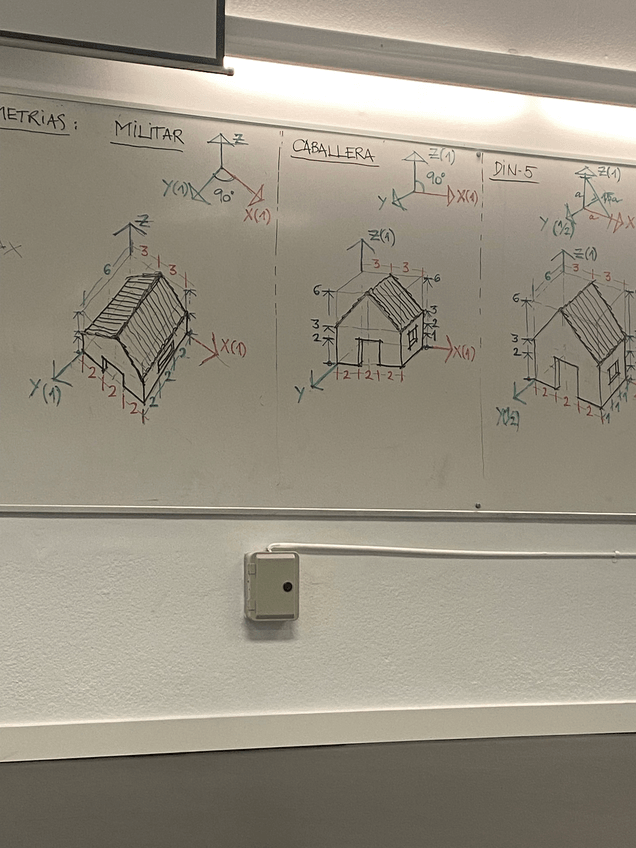 METRIAS:
MILITAR
Z
Y(1)
90°
X(1)
Z
6
3
3
X(1)
Y(1)
2
2
2
2
2
2
CABALLERA
Z(1)
90°
Y
X(1)
Z(1)
3
3
6
6
3
2
3
2
1
X(1)
Y
2
2
2
DIN-5
Z(1)
a
a
Y(1/2)
X
Z(1)
6
3
2
Y(1/2)
2
2
2
1
1
1
X